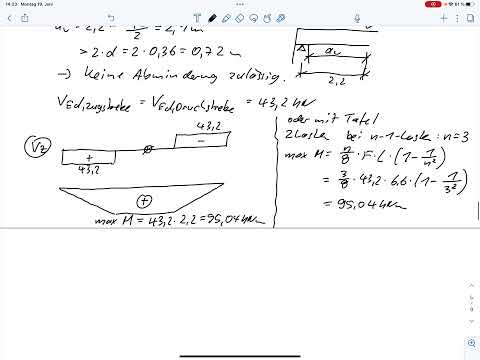 14:23 Montag 19. Juni
61 %
> 2·d = 2·0,36 = 0,72 m
→ Keine Abminderung zulässig.
av
2,2
V_Ed,Zugstrebe = V_Ed,Druckstrebe = 43,2 kN
Vz
+
43,2
43,2
−
+
max M = 43,2·2,2 = 95,04 kNm
oder mit Tafel
2 Lasten bei n-1-Lasten: n=3
max M = n/8 · F · L · (1 - 1/n²)
= 3/8 · 43,2 · 6,6 · (1 - 1/3²)
= 95,04 kNm